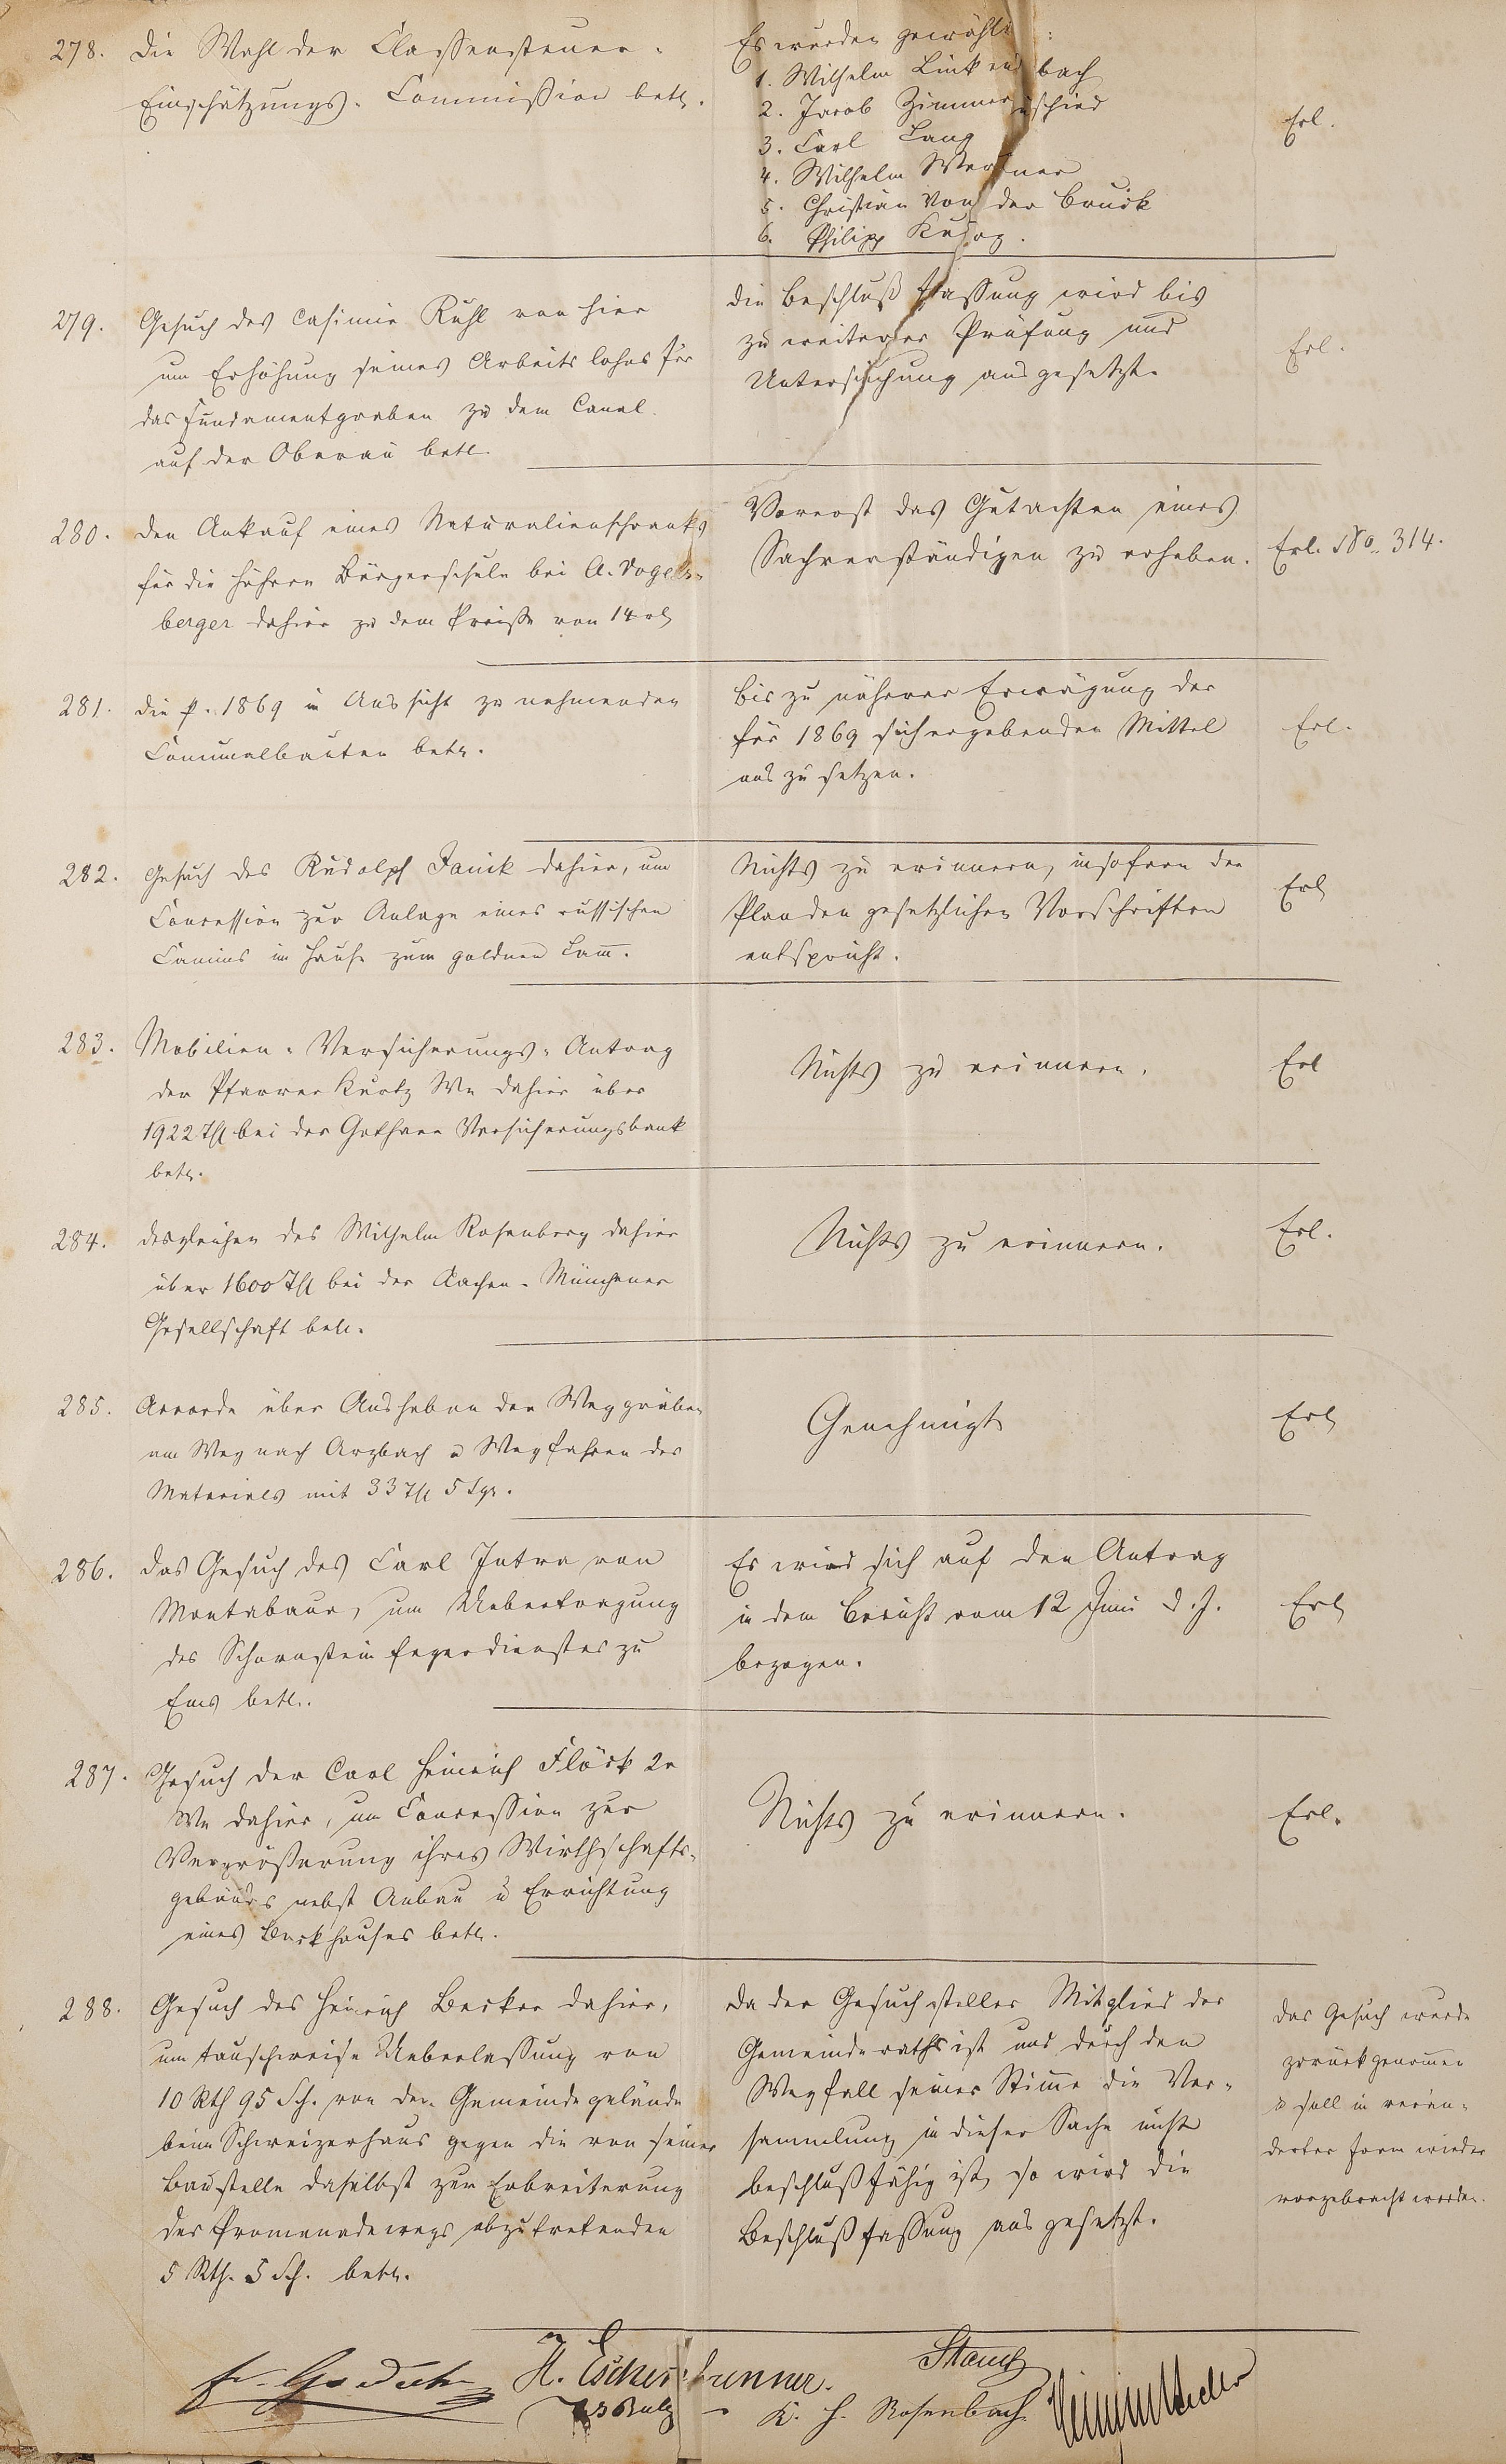 278. Die Wahl der Classensteuer-
Einschätzungs-Commission betr.
Es wurden gewählt:
1. Wilhelm Linkenbach
2. Jacob Zimmerschied
3. Carl Lang
4. Wilhelm
5. Christian von der Bruck
6. Philipp
Erl.
279. Gesuch des Casimir Ruhl von hier
um Erhöhung seines Arbeitslohns für
das Fundamentgraben zu dem Canal
auf der Oberau betr.
Die Beschlußfassung wird bis
zu weiterer Prüfung und
Untersuchung ausgesetzt.
Erl.
280. Den Ankauf eines Naturalienschranks
für die höhere Bürgerschule bei A. Vogels-
berger dahier zu dem Preiße von 14 rl
Vorerst das Gutachten eines
Sachverständigen zu erheben.
Erl. No. 314.
281. Die p. 1869 in Aussicht zu nehmenden
Communalbauten betr.
Bis zu näherer Erwägung der
für 1869 sich ergebenden Mittel
aus zu setzen.
Erl.
282. Gesuch des Rudolph Janik dahier, um
Concession zur Anlage eines russischen
Camins im Hause zum goldnen Lam̅.
Nichts zu erinnern, insofern der
Plan den gesetzlichen Vorschriften
entspricht.
Erl
283. Mobilien-Versicherungs-Antrag
der Pfarrer Kurtz We dahier über
1922 Tlr bei der Gothaer Versicherungsbank
betr.
Nichts zu erinnern.
Erl
284. desgleichen des Wilhelm Rosenberg dahier
über 1600 Tlr bei der Aachen-Münchener
Gesellschaft betr.
Nichts zu erinnern.
Erl.
285. Accorde über Ausheben der Weggräben
am Weg nach Arzbach u Wegfahren des
Materials mit 33 Tlr 5 Sgr.
Genehmigt
Erl
286. Das Gesuch des Carl Intra von
Montabaur, um Uebertragung
des Schornsteinfegerdienstes zu
Ems betr.
Es wird sich auf den Antrag
in dem Bericht vom 12 Juni d. J.
bezogen.
Erl
287. Gesuch der Carl Heinrich Flöck 2r
We dahier, um Concession zur
Vergrößerung ihres Wirthschafts-
gebäudes nebst Anbau u Errichtung
eines Backhauses betr.
Nichts zu erinnern.
Erl.
288. Gesuch des Heinrich Becker dahier,
um tauschweise Ueberlassung von
10 Rth 95 Sch. von dem Gemeindegelände
beim Schweizerhaus gegen die von seiner
Baustelle daselbst zur Erbreiterung
des Promenadewegs abzutretenden
5 Rth. 5 Sch. betr.
Da der Gesuchsteller Mitglied des
Gemeinderaths ist und durch den
Wegfall seiner Stimme die Ver-
sammlung in dieser Sache nicht
beschlußfähig ist, so wird die
Beschlußfassung ausgesetzt.
Das Gesuch wurde
zurückgenommen
u soll in verän-
derter Form wieder
vorgebracht werden.
H. Eschenbrenner.
K. H. Rosenbach